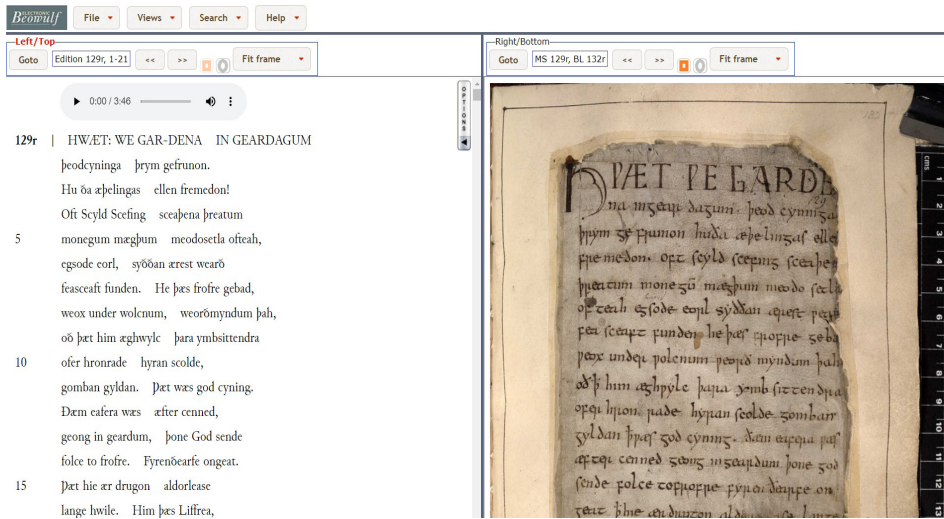 ELECTRONIC
Beowulf
File
Views
Search
Help
Left/Top
Goto
Edition 129r, 1-21
<<
>>
Fit frame
Right/Bottom
Goto
MS 129r, BL 132r
<<
>>
Fit frame
0:00 / 3:46
OPTIONS
129r | HWÆT: WE GAR-DENA IN GEARDAGUM
þeodcyninga þrym gefrunon.
Hu ða æþelingas ellen fremedon!
Oft Scyld Scefing sceaþena þreatum
5 monegum mægþum meodosetla ofteah,
egsode eorl, syððan ærest wearð
feasceaft funden. He þæs frofre gebad,
weox under wolcnum, weorðmyndum þah,
oð þæt him æghwylc þara ymbsittendra
10 ofer hronrade hyran scolde,
gomban gyldan. Þæt wæs god cyning.
Ðæm eafera wæs æfter cenned,
geong in geardum, þone God sende
folce to frofre. Fyrenðearfe ongeat.
15 Þæt hie ær drugon aldorlease
lange hwile. Him þæs Liffrea,
HǷÆT ǷE GARDE
na ingear dagum. þeod cyninga
þrym ge frunon huða æþelingas elle
fre medon. oft scyld scefing sceaþe
þreatum monegū mægþum meodo setla
of teah egsode eorl syððan ærest ƿear
fea sceaft funden he þæs frofre geba
ƿeox under ƿolcnum ƿeorð myndum þah
oð þ him æghƿylc þara ymb sittendra
ofer hron rade hyran scolde gomban
gyldan þ ƿæs god cyning. ðæm eafera ƿæs
æfter cenned geong ingeardum þone god
sende folce tofrofre fyren ðearfe on
cms
1
2
3
4
5
6
7
8
9
10
11
12
13